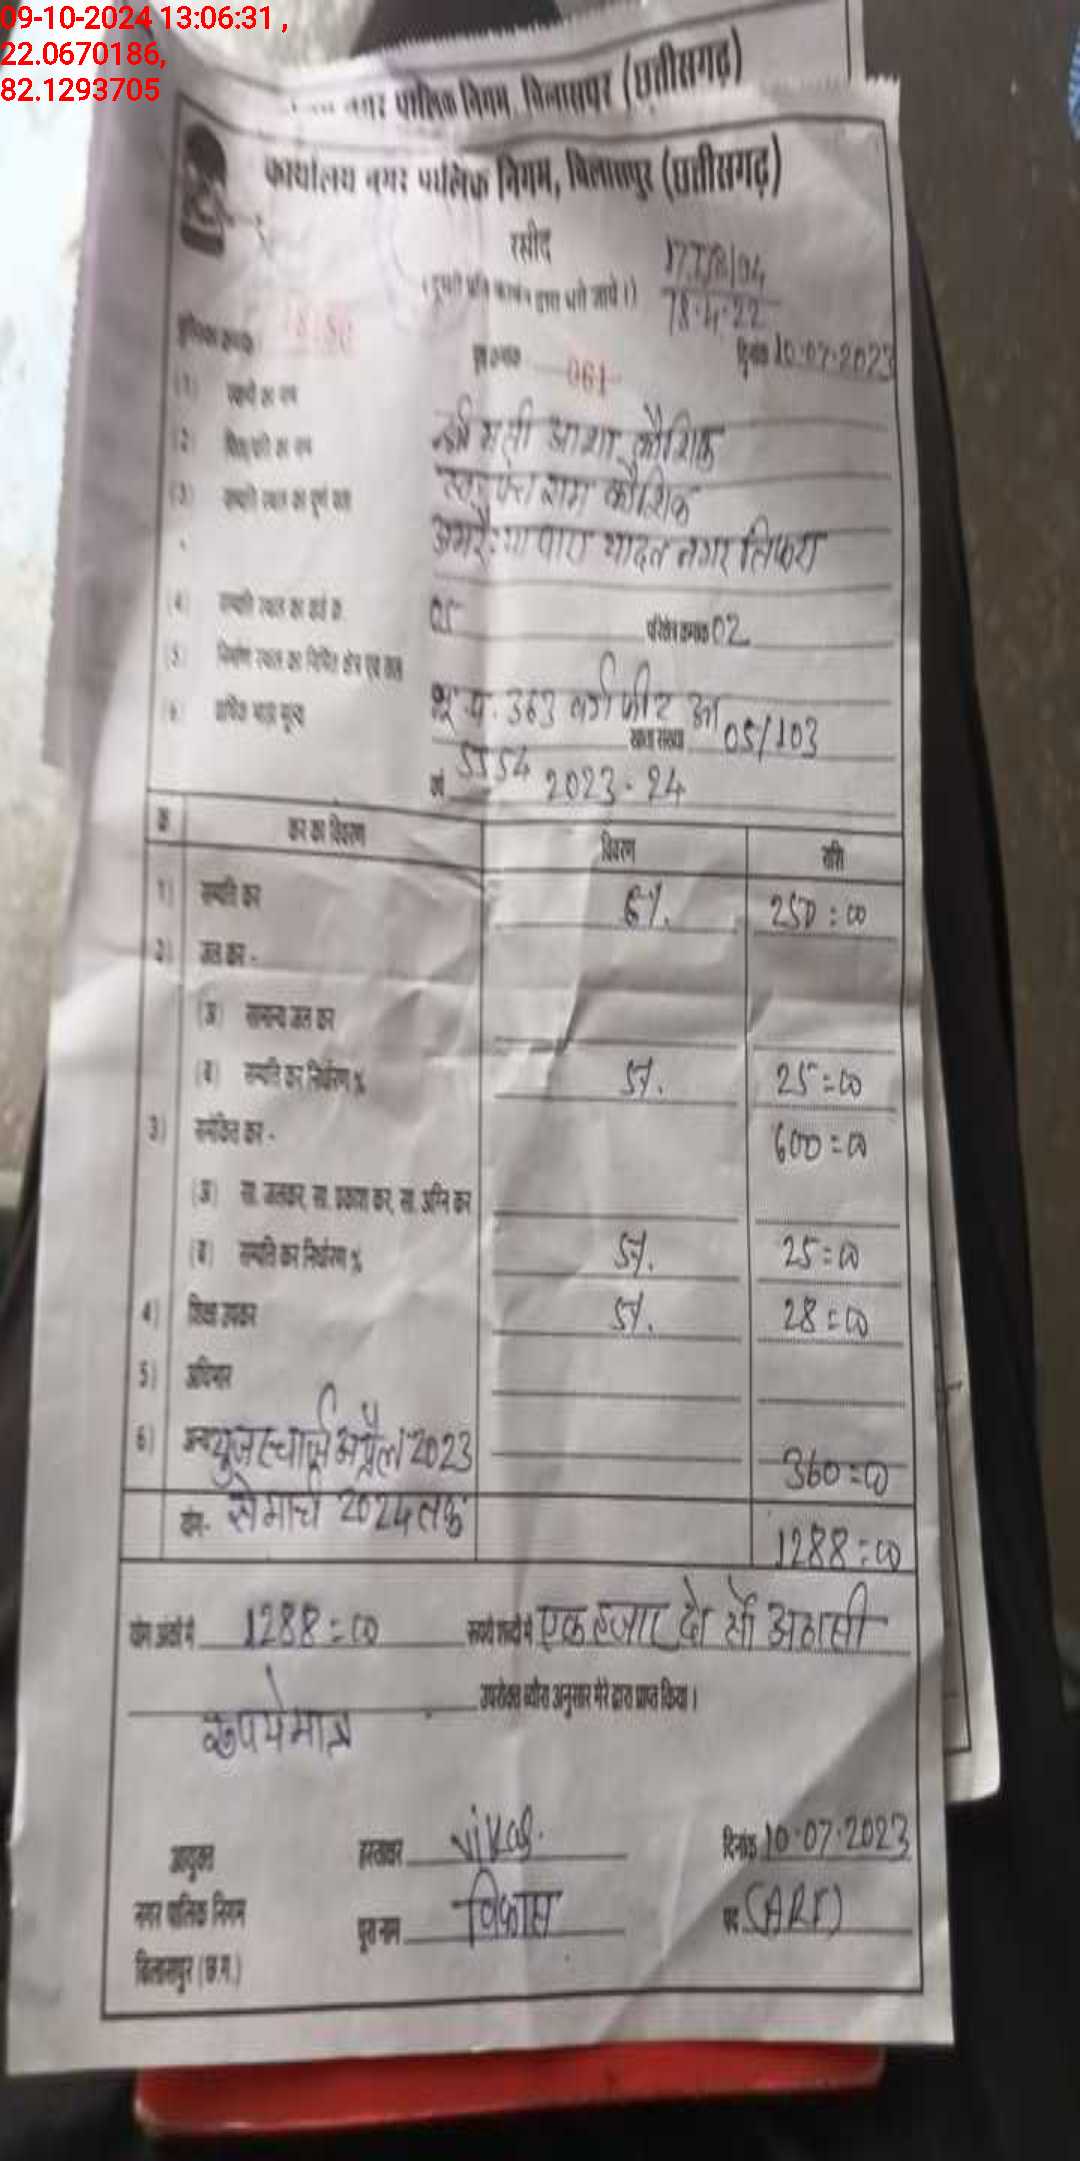 09-10-2024 13:06:31 ,
22.0670186,
82.1293705
नगर पालिक निगम, बिलासपुर (छत्तीसगढ़)
कार्यालय नगर पालिक निगम, बिलासपुर (छत्तीसगढ़)
रसीद
78.4.22
061
दिनांक 10.07.2023
(1)
श्रीमती आशा कौशिक
(2)
राम कौशिक
(3)
पारा यादव नगर तिफरा
(4) 05 02
(5)
भू.प. 363 वर्ग फीट
(6) 05/103
5554 2023-24
क्र कर का विवरण विवरण राशि
1) सम्पति कर 6%. 250=00
2) जल कर -
(अ) सामान्य जल कर
(ब) सम्पति कर निर्धारण % 5%. 25=00
3) समेकित कर - 600=00
(अ) सा. जलकर, सा. प्रकाश कर, सा. अग्नि कर
(ब) सम्पति कर निर्धारण % 5%. 25=00
4) शिक्षा उपकर 5%. 28=00
5) अधिभार
6) अन्य यूजर चार्ज अप्रैल 2023 360=00
योग- से मार्च 2024 तक 1288=00
योग अंकों में 1288=00 रूपये शब्दों में एक हजार दो सौ अठासी
रूपये मात्र
उपरोक्त ब्यौरा अनुसार मेरे द्वारा प्राप्त किया।
आयुक्त हस्ताक्षर Vikas. दिनांक 10.07.2023
नगर पालिक निगम पूरा नाम विकास पद (ARI)
बिलासपुर (छ.ग.)